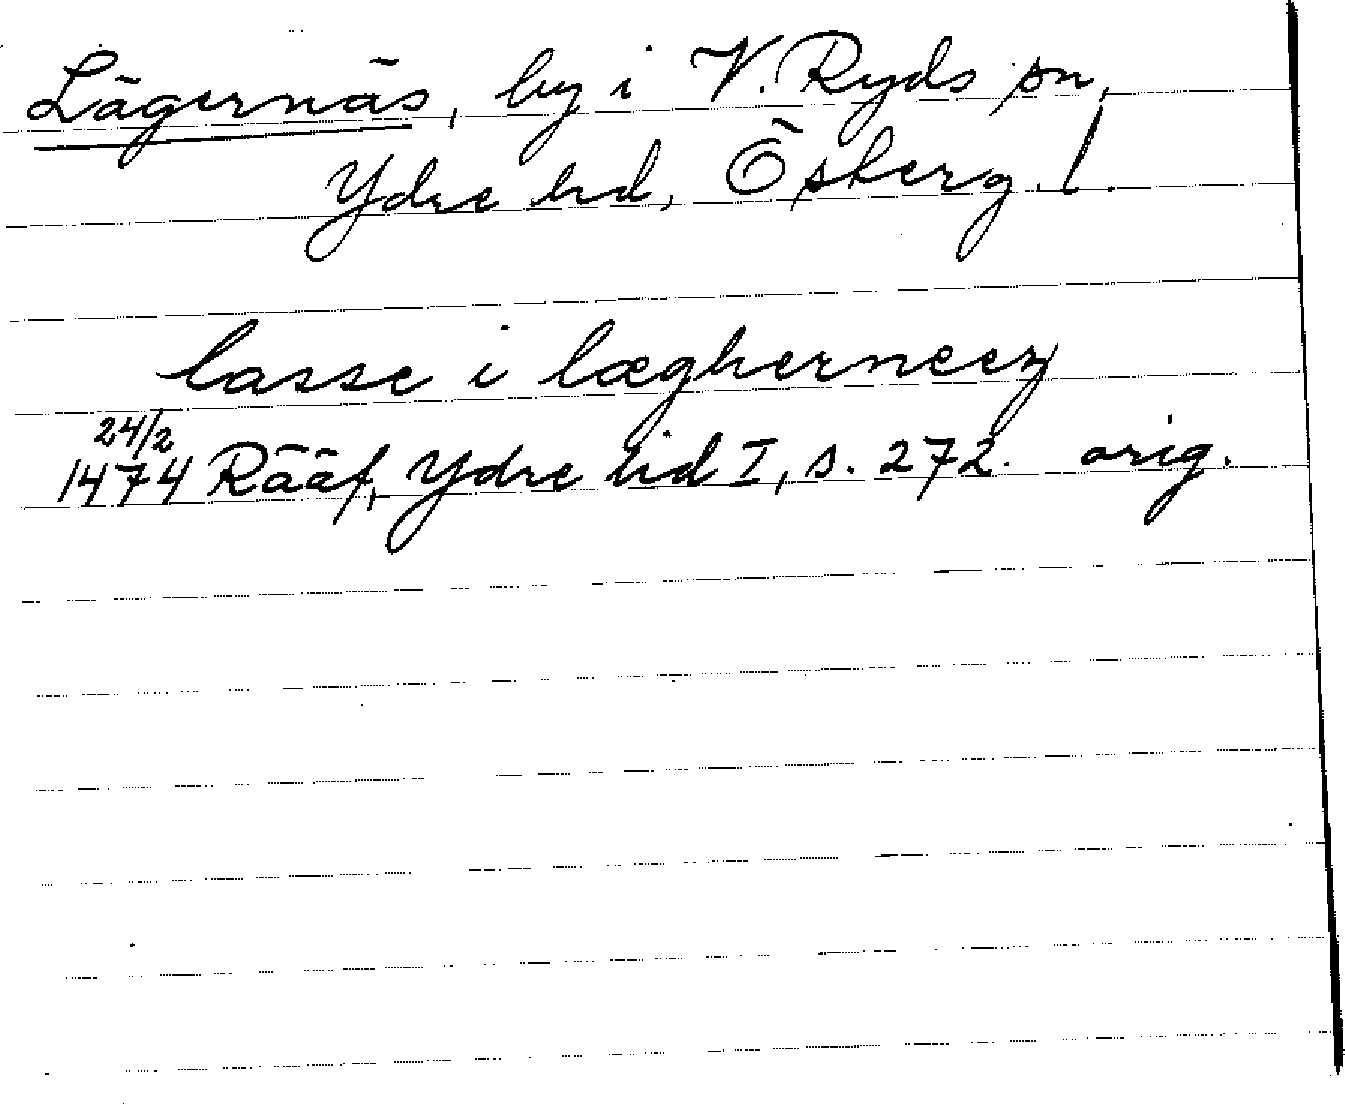 Lägernäs, by i V. Ryds sn,
Ydre hd, Östergl.
lasse i lægherneez
24/2
1474 Rääf, Ydre hd I, s. 272. orig.